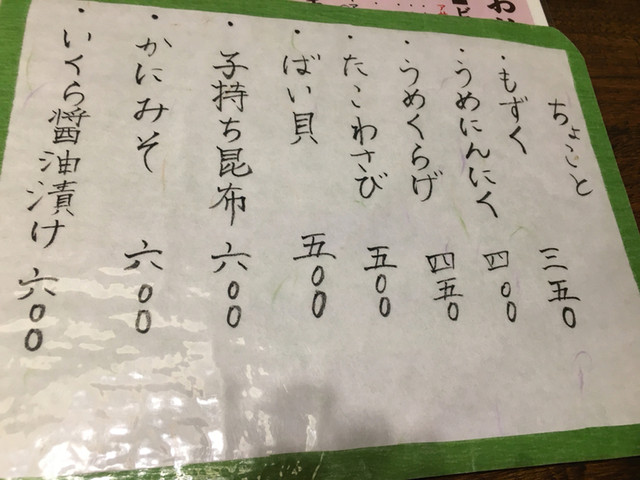 ちょこっと
・もずく 三五〇
・うめにんにく 四〇〇
・うめくらげ 四五〇
・たこわさび 五〇〇
・ばい貝 五〇〇
・子持ち昆布 六〇〇
・かにみそ 六〇〇
・いくら醤油漬け 六〇〇